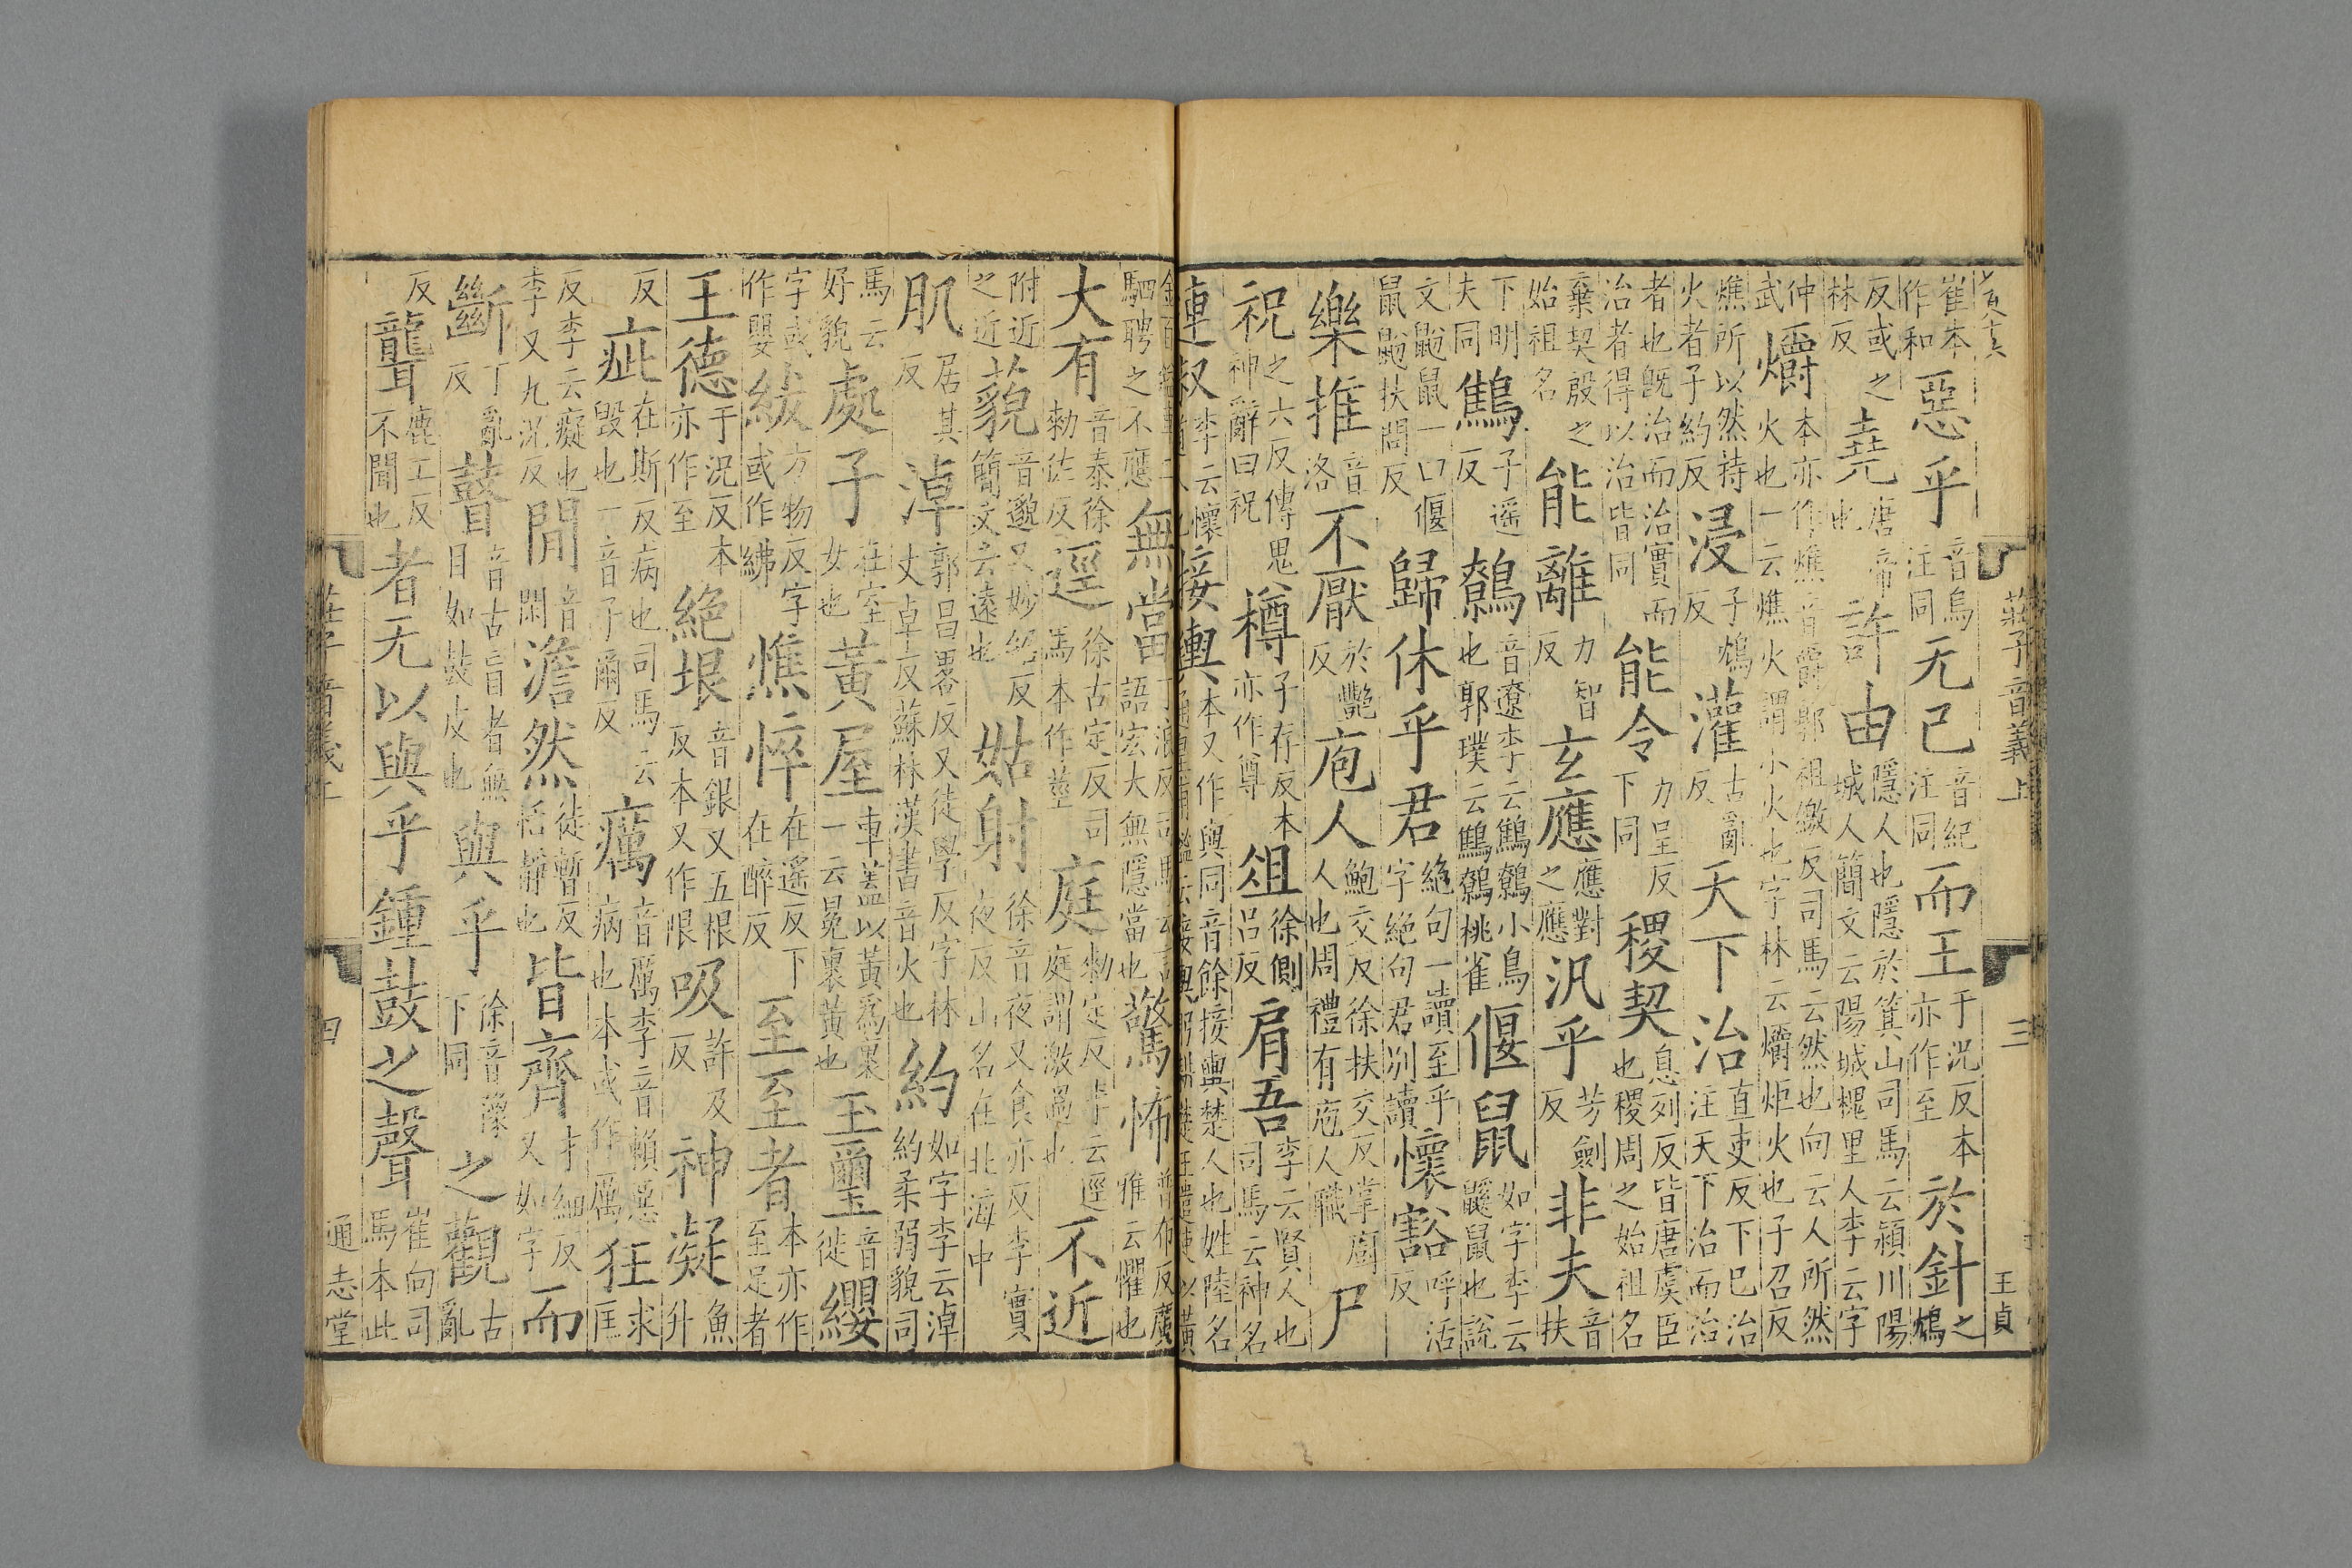 莊子音義上 三 王貞
崔本作和 惡乎 音烏注同 无己 音紀注同 而王 于況反本亦作至 於針 之鴆
反或之林反 堯 唐帝也 許由 隱人也隱於箕山司馬云潁川陽城人簡文云陽城槐里人李云字
仲武 爝 本亦作燋音爵郭祖繳反司馬云然也向云人所然火也一云燋火謂小火也字林云爝炬火也子召反
燋所以然持火者子約反 浸 子鴆反 灌 古亂反 天下治 直吏反下已治注天下治而治
者也既治而治實而治者得以治皆同 能令 力呈反下同 稷契 息列反皆唐虞臣也稷周之始祖名
棄契殷之始祖名 能離 力智反 玄應 應對之應 汎乎 芳劍反 非夫 音扶
下明夫同 鷦 子遥反 鷯 音遼李云鷦鷯小鳥也郭璞云鷦鷯桃雀 偃鼠 如字李云鼷鼠也說
文鼢鼠一曰偃鼠鼢扶問反 歸休乎君 絶句一讀至乎字絶句君别讀 懷豁 呼活反
樂推 音洛 不厭 於艷反 庖人 鮑交反徐扶交反掌廚人也周禮有庖人職 尸
祝 之六反傳鬼神辭曰祝 樽 子存反本亦作尊 俎 徐側吕反 肩吾 李云賢人也司馬云神名
連叔 李云懷道人也 接輿 本又作與同音餘接輿楚人也姓陸名
駟聘之不應 無當 丁浪反司馬云言語宏大無隱當也 驚怖 普布反廣雅云懼也
大有 音泰徐勑佐反 逕 徐古定反司馬本作莖 庭 勑定反李云逕庭謂激過也 不近
附近之近 藐 音邈又妙紹反簡文云遠也 姑射 徐音夜又食亦反李實夜反山名在北海中
肌 居其反 淖 郭昌畧反又徒學反字林丈卓反蘇林漢書音火也 約 如字李云淖約柔弱貌司
馬云好貌 處子 在室女也 黃屋 車蓋以黃爲裏一云冕裏黃也 玉璽 音徙 纓
字或作嬰 紱 方物反字或作紼 憔悴 在遥反下在醉反 至至者 本亦作至足者
王德 于況反本亦作至 絶垠 音銀又五根反本又作限 吸 許及反 神凝 魚升
反 疵 在斯反病也司馬云毀也一音子爾反 癘 音厲李音賴惡病也本或作厲 狂 求匡
反李云癡也李又九況反 閒 音閑 澹然 徒暫反恬靜也 皆齊 才細反又如字 而
斷 丁亂反 瞽 音古盲者無目如鼓皮也 與乎 徐音豫下同 之觀 古亂
反 聾 鹿工反不聞也 者无以與乎鍾鼓之聲 崔向司馬本此
莊子音義上 四 通志堂